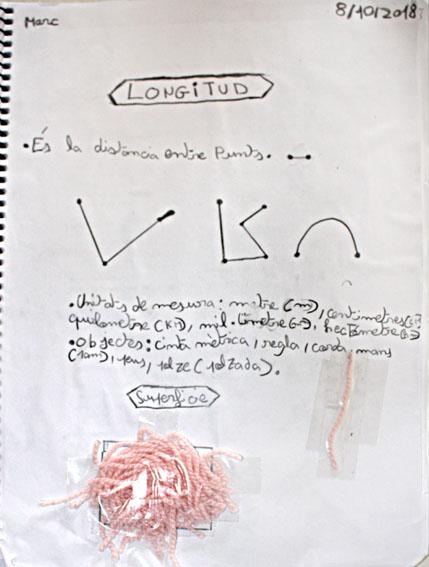 Marc
8/10/2018
LONGITUD
• És la distància entre Punts.
• Unitats de mesura: metre (m), centimetres
quilometre (Km), mil·límetre, hectòmetre
• objectes: cinta mètrica, regla, corda, mans
(1am), peus,
Superfície